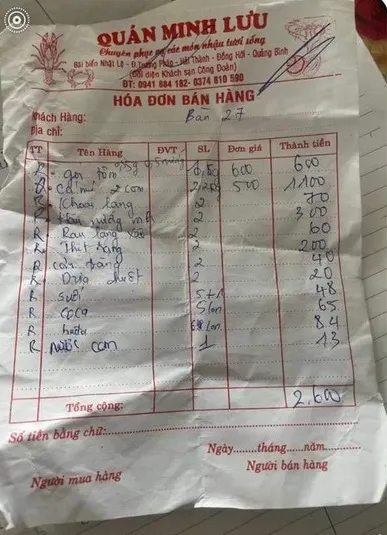 QUÁN MINH LƯU
Chuyên phục vụ các món nhậu tươi sống
Bãi biển Nhật Lệ - Đ.Trương Pháp - Hải Thành - Đồng Hới - Quảng Bình
(Đối diện Khách sạn Công Đoàn)
ĐT: 0941 684 182- 0374 810 590
HÓA ĐƠN BÁN HÀNG
Khách Hàng: Bàn 27
Địa chỉ:
TT Tên Hàng ĐVT SL Đơn giá Thành tiền
R tôm 600 600
R cá 2 con 500 1100
R Khoai lang 2 70
R nướng 2 300
R Rau lang xào 2 60
R Thịt 2 200
R cơm trắng 2 40
R Dưa chuột 2 20
R suối 5+1 48
R coca 5lon 65
R huda 6lon 84
R nước cam 1 13
Tổng cộng: 2.600
Số tiền bằng chữ:
Ngày......tháng.....năm.....
Người mua hàng Người bán hàng